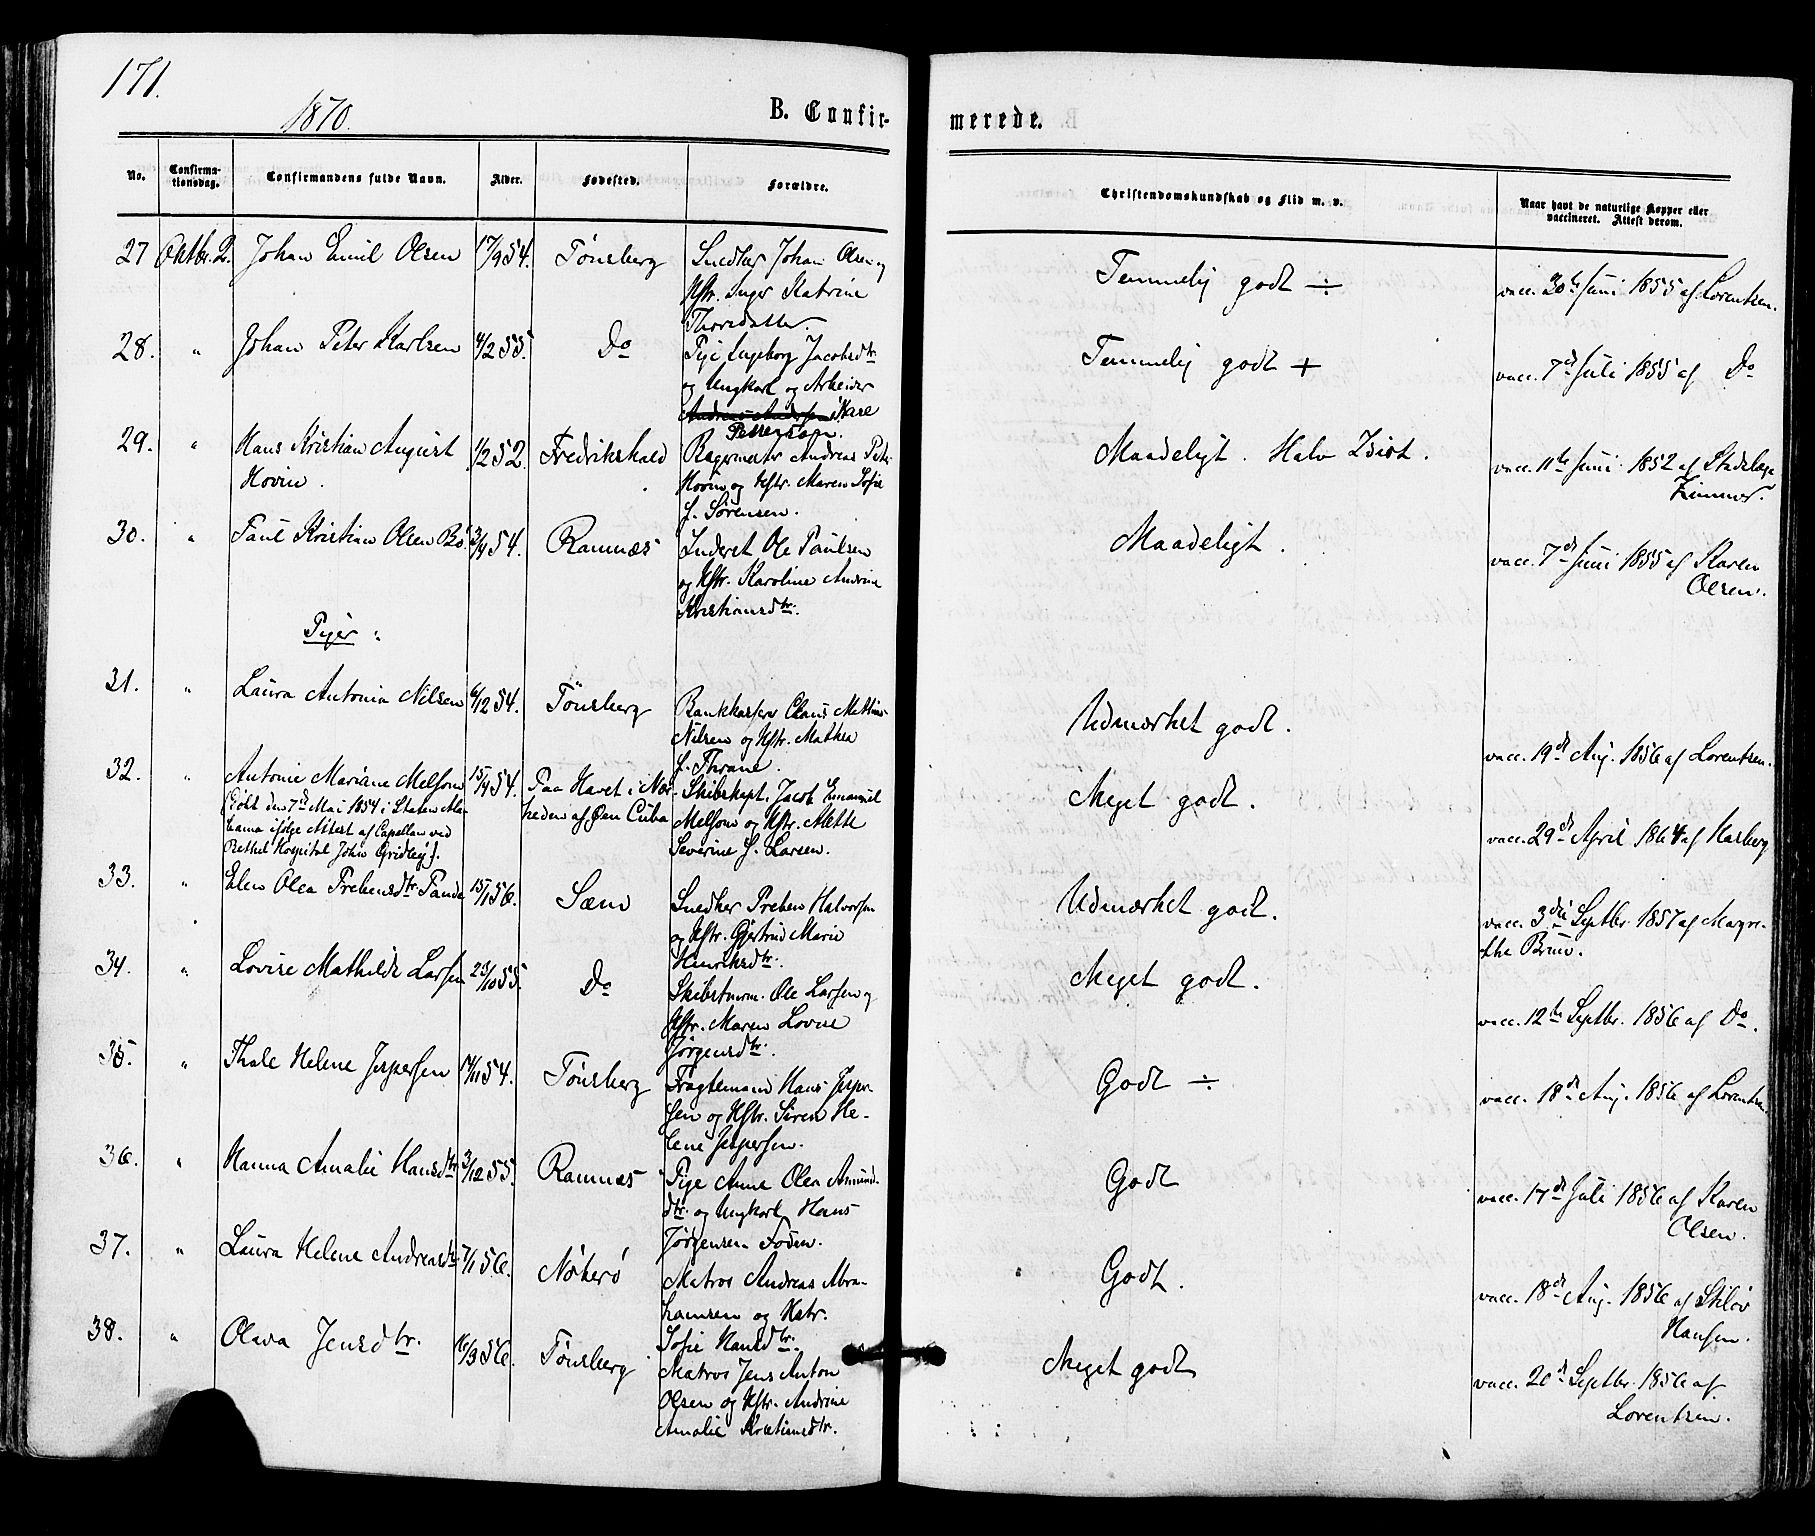 171.
1870.
B. Confir-
merede.
No.
Confirma-
tionsdag.
Confirmandens fulde Navn.
Alder.
Fødested.
Forældre.
Christendomskundskab og Flid m. v.
Naar havt de naturlige Kopper eller
vaccineret. Attest derom.
27 Oktbr. 2. Johan Emil Olsen 17/9 54. Tönsberg Snedker Johan Olsen og
Hstr. Inger Katrine
Thorsdatter.
Temmelig godt ÷ vacc. 30te Juni 1855 af Lorentsen.
28. " Johan Peter Karlsen 4/2 55. Do Pige Ingeborg Jacobsdtr
og Ungkarl og Arbeider
Andreas Andersen Kare
Pettersen.
Temmelig godt + vacc. 7de Juli 1855 af Do
29. " Hans Kristian August 1/2 52. Fredrikshald Bagermester Andreas Peter
Hovin. Hovin og Hstr. Maren Sofie
f. Sörensen.
Maadeligt. Halv Idiot. vacc. 11te Juni 1852 af Stadslæge
Zimmer.
30. " Paul Kristian Olsen Bö. 3/4 54. Ramnæs Inderst Ole Paulsen
og Hstr. Karoline Andrine
Kristiansdtr.
Maadeligt. vacc. 7de Juni 1855 af Karen
Olsen.
Piger:
31. " Laura Antonia Nilsen 6/12 54. Tönsberg Bankkasserer Claus Mathias
Nilsen og Hstr. Mathea
f. Thrane.
Udmærket godt. vacc. 19de Aug. 1856 af Lorentsen.
32. " Antonie Mariane Melsom 15/4 54. Paa Havet i Nær- Skibskapt. Jacob Emanuel
(Döbt den 7de Mai 1854 i Staten Ala- heden af Öen Cuba Melsom og Hstr. Mette
bama ifölge Attest af Capellan ved Severine f. Larsen.
Bethel Hospital John Gridley).
Meget godt. vacc. 29de April 1864 af Harberg
33. " Elen Olea Prebensdtr Pande 15/1 56. Sæm Snedker Preben Halvorsen
og Hstr. Gjertrud Marie
Henriksdtr.
Udmærket godt. vacc. 3die Septbr. 1857 af Magre-
the Bruu.
34. " Lovise Mathilde Larsen 25/10 55. Do Skibstömm. Ole Larsen og
Hstr. Maren Lovise
Jörgensdtr.
Meget godt. vacc. 12te Septbr. 1856 af Do.
35. " Thale Helene Jespersen 14/11 54. Tönsberg Fragtemand Hans Jesper-
sen og Hstr. Siren He-
lene Jespersen.
Godt ÷ vacc. 18de Aug. 1856 af Lorentsen.
36. " Hanna Amalie Hansdtr 3/12 55. Ramnæs Pige Anne Olea Amund-
dtr. og Ungkarl Hans
Jörgensen Foden.
Godt vacc. 17de Juli 1856 af Karen
Olsen.
37. " Laura Helene Andreasdtr 7/1 56. Nöterö Matros Andreas Abra-
hamsen og Hstr.
Sofie Hansdtr.
Godt. vacc. 18de Aug. 1856 af Stilöv
Hansen.
38. " Olava Jensdtr. 16/3 56. Tönsberg Matros Jens Anton
Olsen og Hstr. Andrine
Amalie Kristiansdtr.
Meget godt vacc. 20de Septbr. 1856 af
Lorentsen.